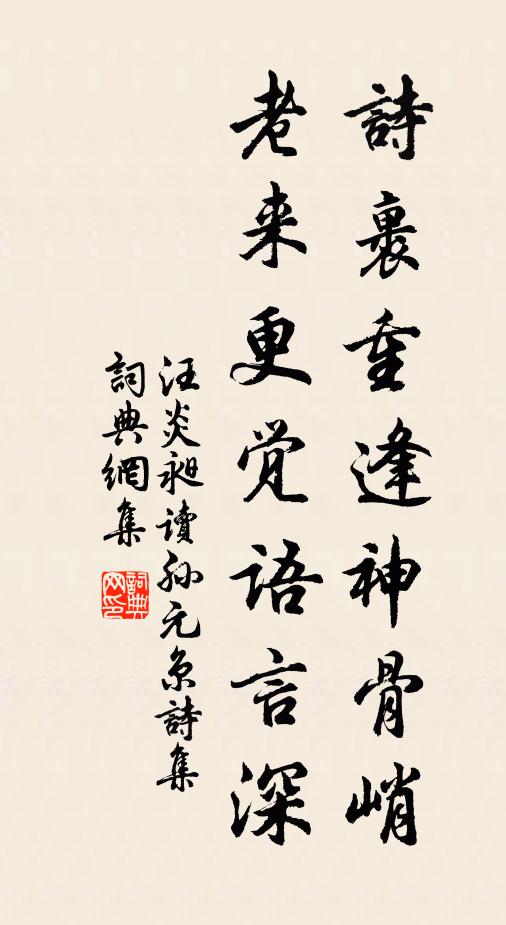 詩裏重逢神骨峭
老来更覚語言深
汪炎昶读孙元京詩集
詞典網集
詞典网印